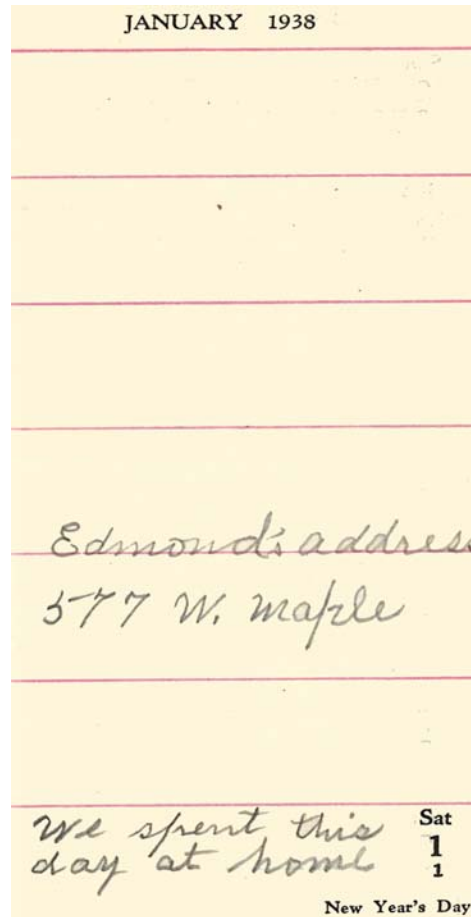 JANUARY 1938
Edmond's address
577 W. Maple
We spent this
day at home
Sat
1
1
New Year's Day